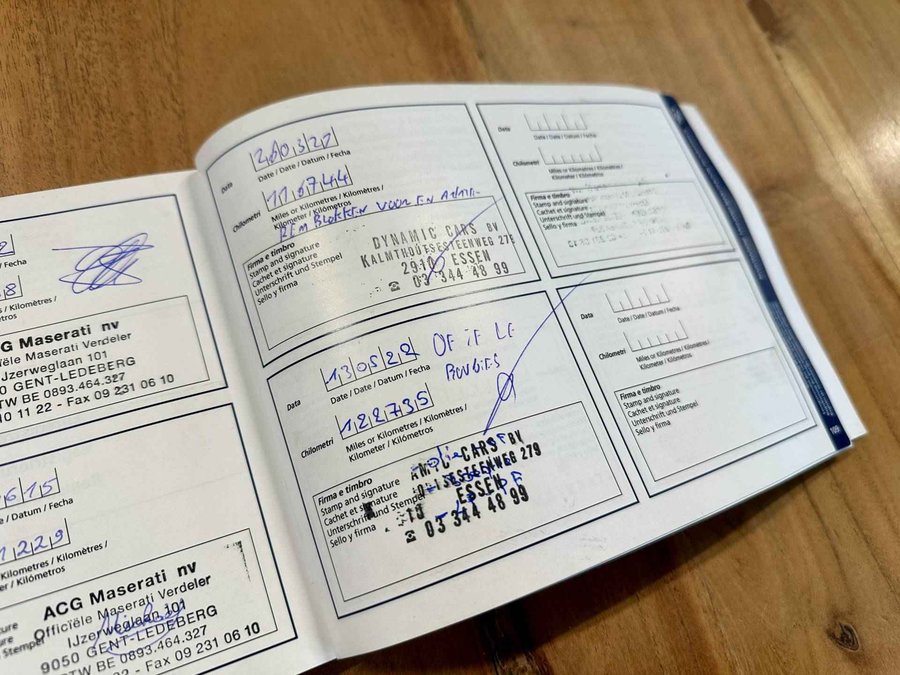 8
/ Fecha
s / Kilomètres /
ACG Maserati nv
Officiële Maserati Verdeler
IJzerweglaan 101
GENT-LEDEBERG
BTW BE 0893.464.327
10 11 22 - Fax 09 231 06 10
615
/ Fecha
1229
Kilometres / Kilomètres /
er / Kilómetros
ACG Maserati nv
Officiële Maserati Verdeler
IJzerweglaan 101
9050 GENT-LEDEBERG
BTW BE 0893.464.327
- Fax 09 231 06 10
Data
Date / Date / Datum / Fecha
Chilometri
Miles or Kilometres / Kilomètres /
Kilometer / Kilómetros
REMBLOKKEN VOOR EN
Firma e timbro
Stamp and signature
Cachet et signature
Unterschrift und Stempel
Sello y firma
DYNAMIC CARS BV
KALMTHOUTSESTEENWEG 279
2910 ESSEN
☎ 03 344 48 99
Data
130522
Date / Date / Datum / Fecha
Chilometri
122735
Miles or Kilometres / Kilomètres /
Kilometer / Kilómetros
Firma e timbro
Stamp and signature
Cachet et signature
Unterschrift und Stempel
Sello y firma
AMIC CARS BV
SESTEENWEG 279
ESSEN
☎ 03 344 48 99
Data
Date / Date / Datum / Fecha
Chilometri
Miles or Kilometres / Kilomètres /
Kilometer / Kilómetros
Firma e timbro
Stamp and signature
Cachet et signature
Unterschrift und Stempel
Sello y firma
Data
Date / Date / Datum / Fecha
Chilometri
Miles or Kilometres / Kilomètres /
Kilometer / Kilómetros
Firma e timbro
Stamp and signature
Cachet et signature
Unterschrift und Stempel
Sello y firma
109